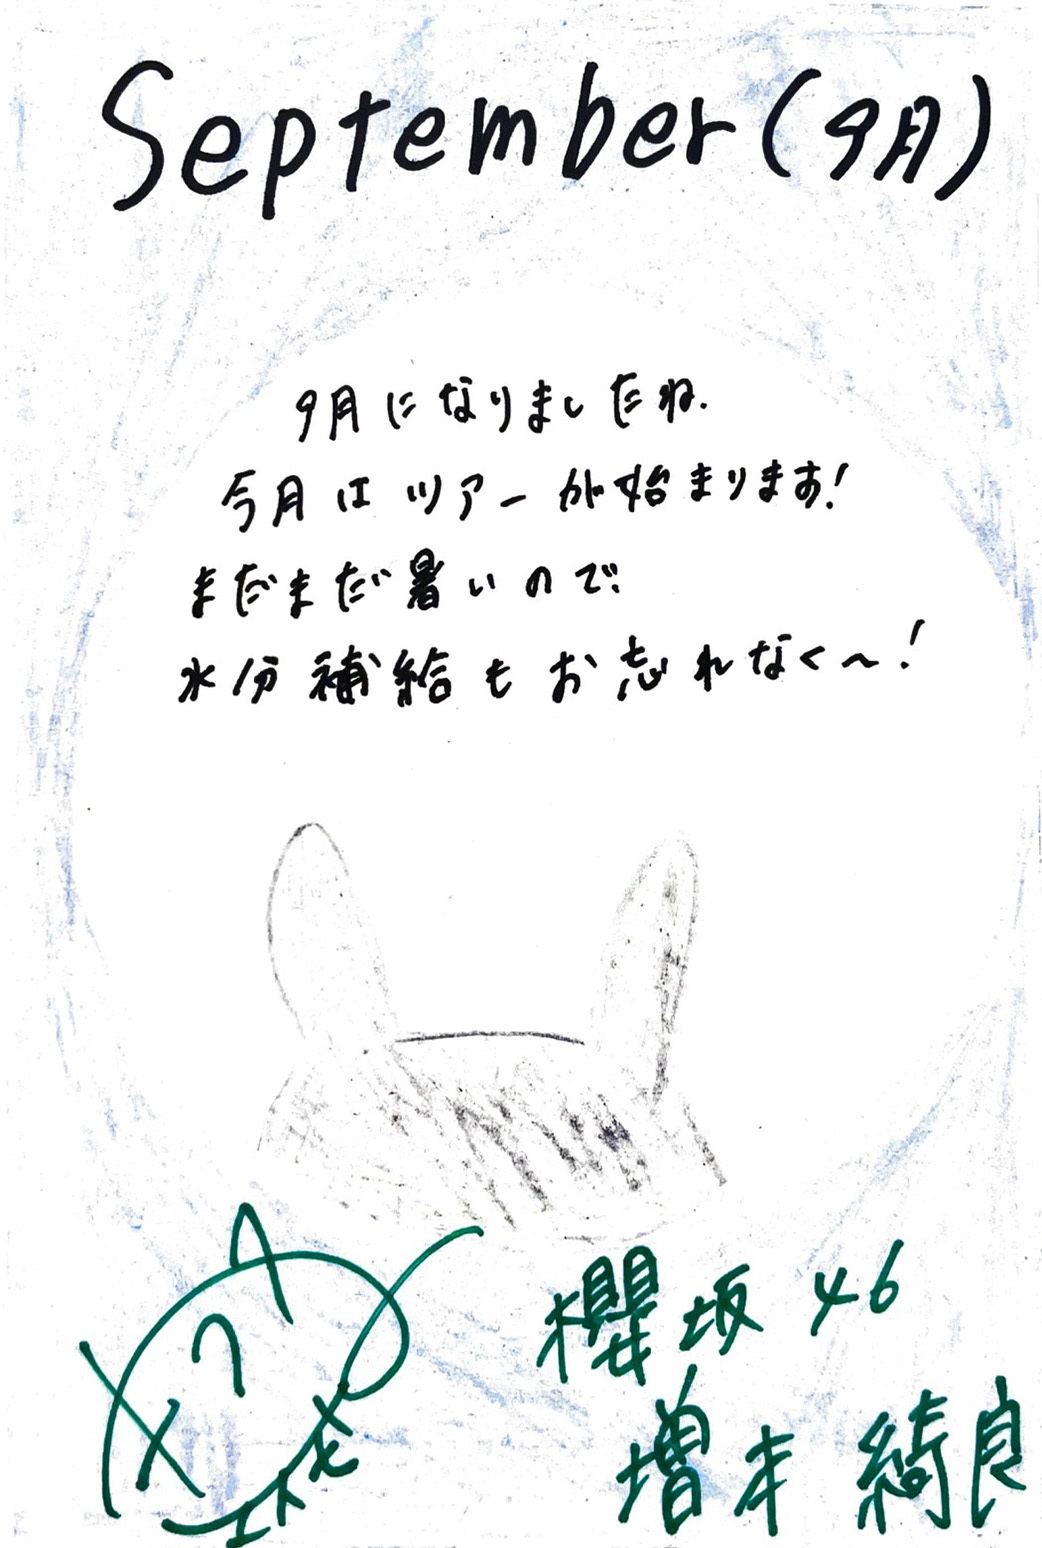 September(9月)
9月になりましたね.
今月はツアーが始まります!
まだまだ暑いので
水分補給もお忘れなく〜!
櫻坂46
増本綺良